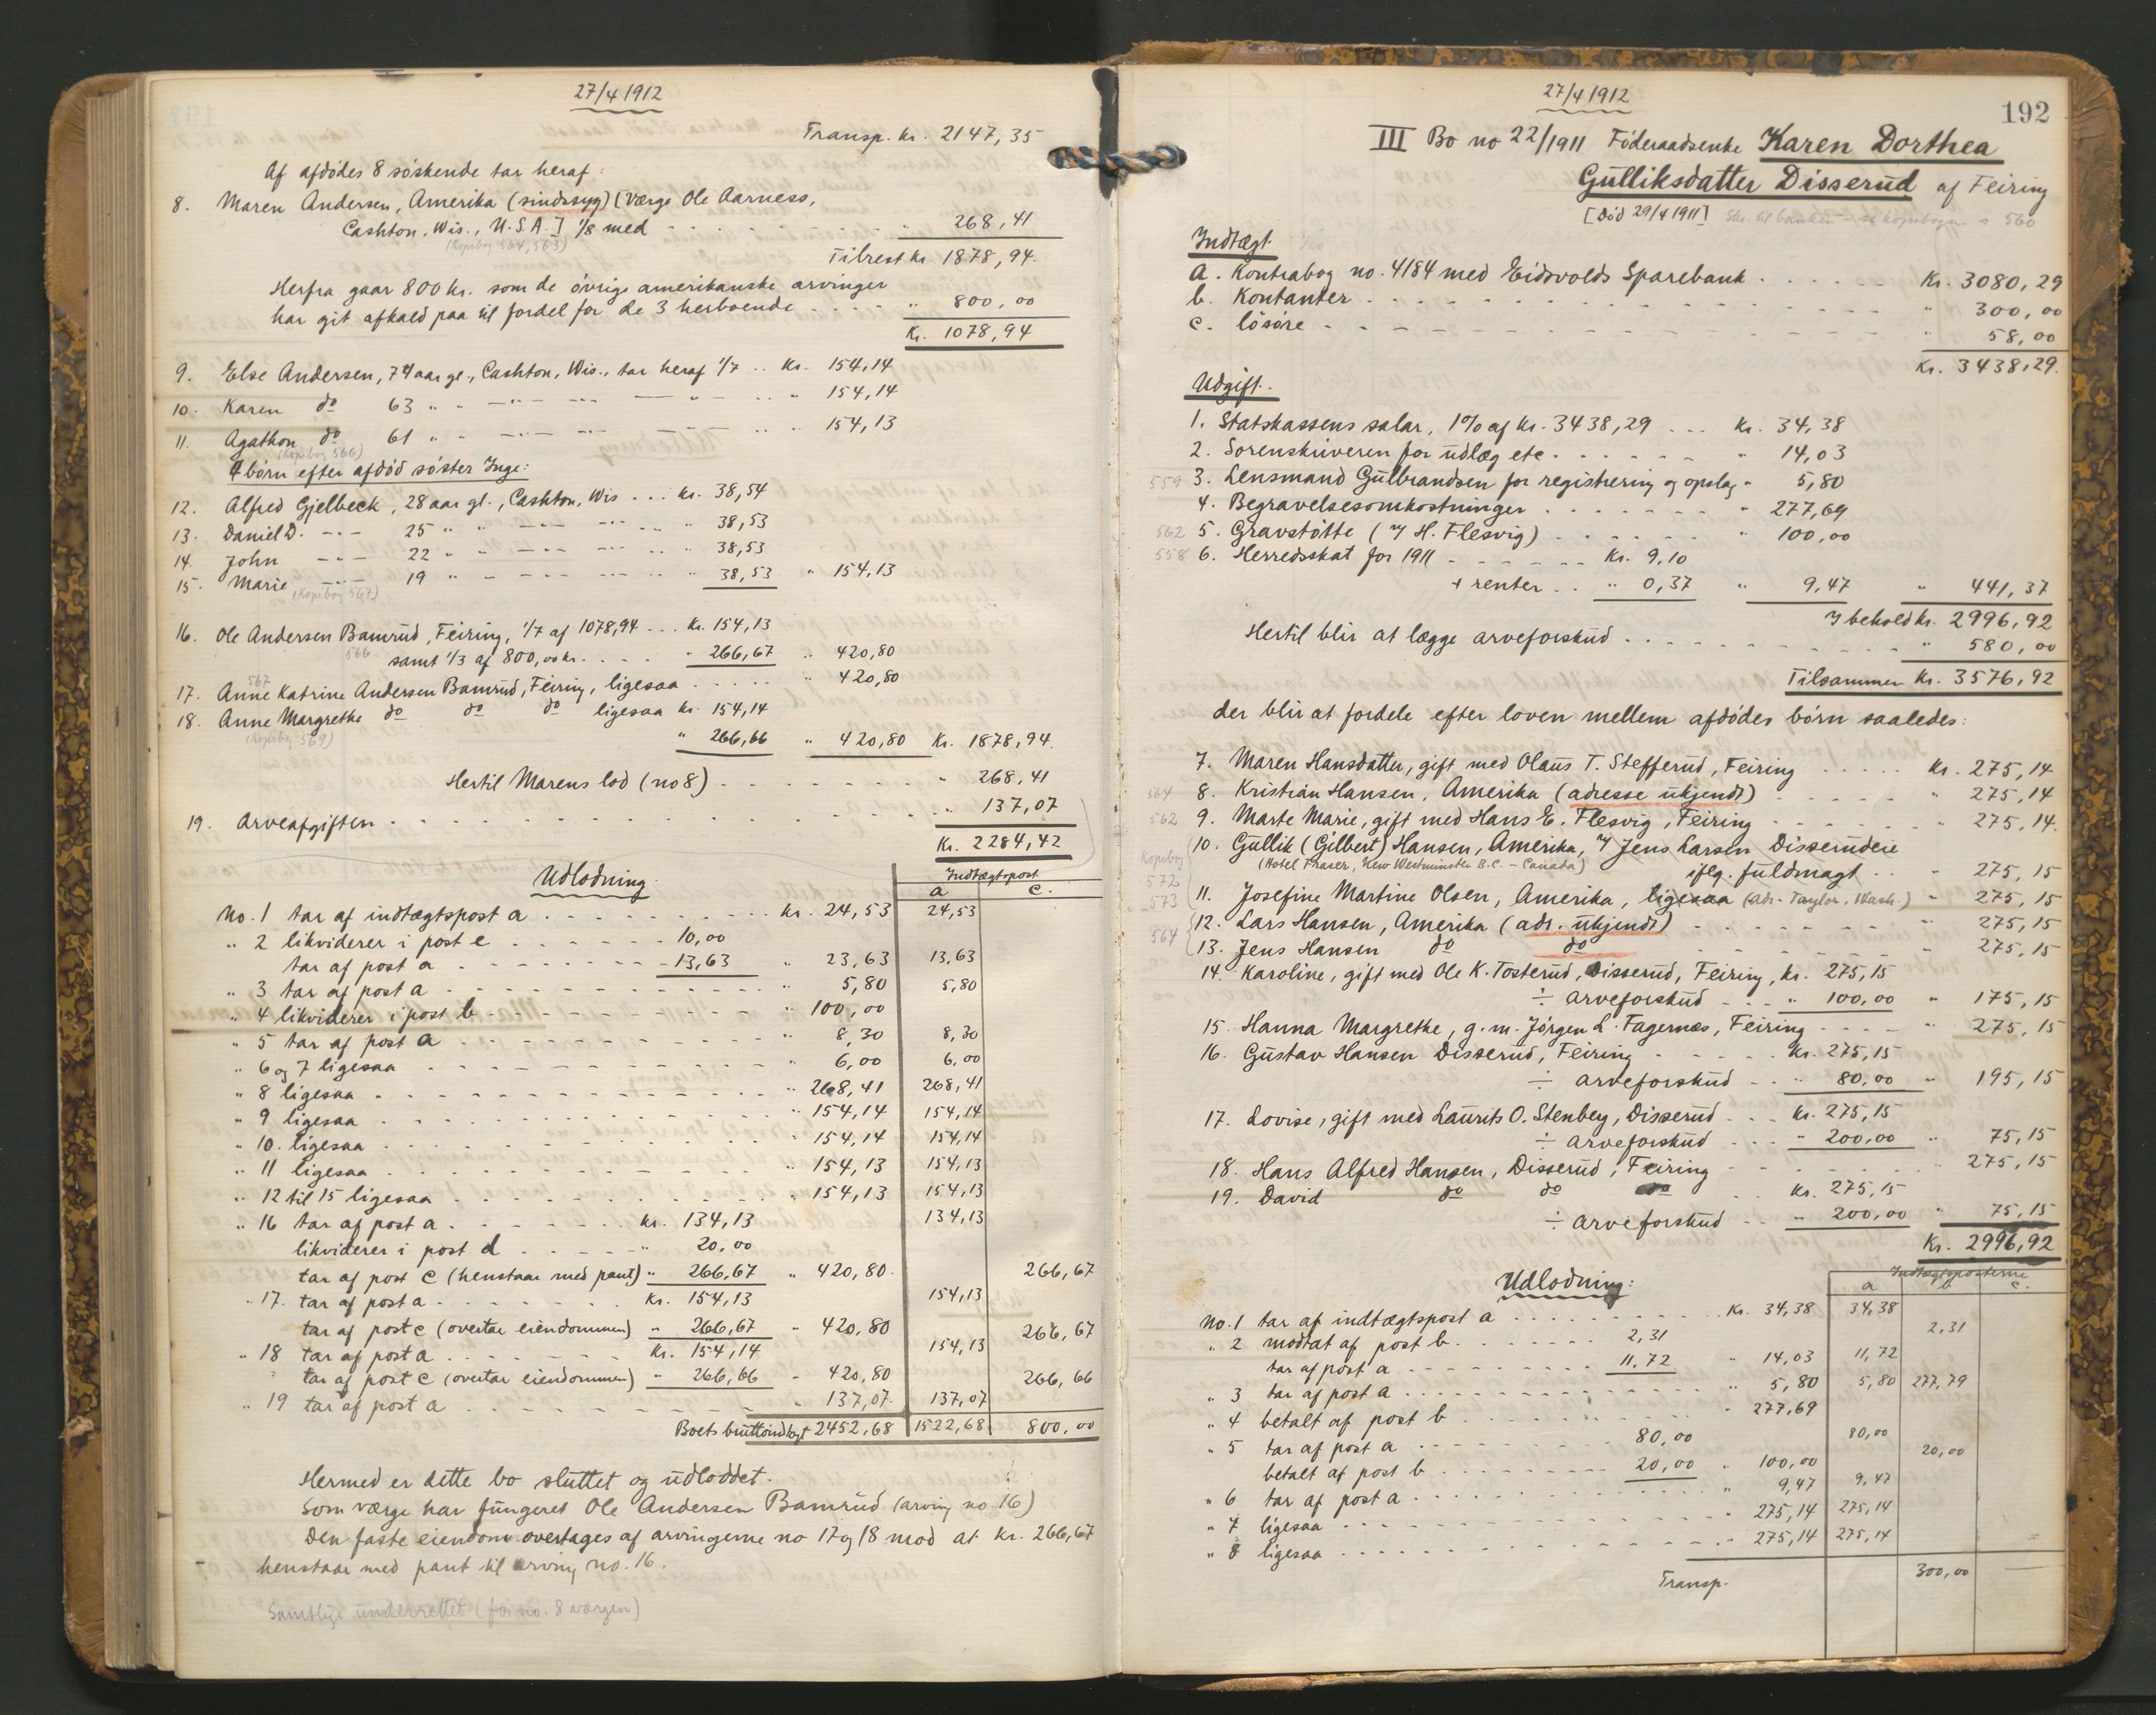 27/4 1912
Transp. kr. 2147,35
Af afdødes 8 søskende tar heraf:
8. Maren Andersen, Amerika (sindssyg) [Værge Ole Aarness,
Cashton, Wis., U.S.A.] 1/8 med - - - " 268,41
(Kopibog 564, 563)
Tilrest kr 1878,94.
Herfra gaar 800 kr. som de øvrige amerikanske arvinger
har git afkald paa til fordel for de 3 herboende - - - - " 800,00
Kr. 1078,94
9. Else Andersen, 74 aar gl., Cashton, Wis., tar heraf 1/7 .. kr. 154,14
10. Karen do 63 " " -"- --- -"- .. " 154,14
11. Agathon do 61 " " -"- --- -"- .. " 154,13
(Kopibog 566)
4 børn efter afdød søster Inge:
12. Alfred Gjelbeck, 28 aar gl., Cashton, Wis ... kr. 38,54
13. Daniel D. -"- 25 " " -"- --- .. " 38,53
14. John -"- 22 " " -"- --- .. " 38,53
15. Marie -"- 19 " " -"- --- .. " 38,53 " 154,13
(Kopibog 567)
16. Ole Andersen Bamrud, Feiring, 1/7 af 1078,94 ... kr. 154,13
566 samt 1/3 af 800,00 kr. . . . . " 266,67 " 420,80
567
17. Anne Katrine Andersen Bamrud, Feiring, ligesaa . . . . . " 420,80
18. Anne Margrethe do do do ligesaa kr. 154,14
(Kopibog 569)
" 266,66 " 420,80 Kr. 1878,94.
Hertil Marens lod (no 8) - - - - - " 268,41
19. Arveafgiften - - - - - " 137,07
Kr. 2284,42
Udlodning.
Indtægtspost
a c.
No. 1 tar af indtægtspost a - - - kr. 24,53 24,53
" 2 likviderer i post e - - - 10,00
tar af post a - - - 13,63 " 23,63 13,63
" 3 tar af post a - - - " 5,80 5,80
" 4 likviderer i post b - - - " 100,00
" 5 tar af post a - - - " 8,30 8,30
" 6 og 7 ligesaa - - - " 6,00 6,00
" 8 ligesaa - - - " 268,41 268,41
" 9 ligesaa - - - " 154,14 154,14
" 10. ligesaa - - - " 154,14 154,14
" 11 ligesaa - - - " 154,13 154,13
" 12 til 15 ligesaa - - - " 154,13 154,13
" 16 tar af post a - - - kr. 134,13 134,13
likviderer i post d - - - " 20,00
tar af post c (henstaar med pant) " 266,67 " 420,80. 266,67
" 17. tar af post a - - - kr. 154,13 154,13
tar af post c (overtar eiendommen) " 266,67 " 420,80 266,67
" 18 tar af post a - - - kr. 154,14 154,13
tar af post c (overtar eiendommen) " 266,66 " 420,80 266,66
" 19 tar af post a - - - " 137,07. 137,07
Boets bruttoindtægt 2452,68 1522,68 800,00
Hermed er dette bo sluttet og udloddet.
Som værge har fungeret Ole Andersen Bamrud (arving no. 16)
Den faste eiendom overtages af arvingerne no 17 og 18 mod at kr. 266,67
henstaar med pant til arving no. 16.
Samtlige underrettet (for no. 8 værgen)
27/4 1912
192
III Bo no 22/1911 Føderaadsenke Karen Dorthea
Gulliksdatter Disserud af Feiring
[Død 29/4 1911] Skr. til banken - se kopibogen s 560
Indtægt.
a. Kontrabog no. 4184 med Eidsvolds Sparebank . . . . . Kr. 3080,29
b. Kontanter - - - " 300,00
c. løsøre - - - " 58,00
Kr. 3438,29.
Udgift.
1. Statskassens salær, 1% af kr. 3438,29 ... kr. 34,38
2. Sorenskriveren for udlæg etc. - - - " 14,03
559 3. Lensmand Gulbrandsen for registrering og opslag " 5,80
4. Begravelsesomkostninger . . . . . " 277,69
562 5. Gravstøtte (v/ H. Flesvig) - - - " 100,00
558 6. Herredsskat for 1911 - - - kr. 9,10
+ renter . . " 0,37 " 9,47 " 441,37
I behold kr. 2996,92
Hertil blir at lægge arveforskud - - - " 580,00
Tilsammen Kr. 3576,92
der blir at fordele efter loven mellem afdødes børn saaledes:
7. Maren Hansdatter, gift med Olaus T. Stefferud, Feiring . . . . . kr. 275,14
564 8. Kristian Hansen, Amerika (adresse ukjendt) - - - " 275,14
562 9. Marte Marie, gift med Hans E. Flesvig, Feiring - - - " 275,14.
10. Gullik (Gilbert) Hansen, Amerika, v/ Jens Larsen Disserudeie
Kopibog (Hotel Fraser, New Westminster B.C. - Canada)
572 iflg. fuldmagt . . " 275,15
573 11. Josefine Martine Olsen, Amerika, ligesaa (adr. Taylor, Wash.) " 275,15
12. Lars Hansen, Amerika (adr. ukjendt) - - - " 275,15
564 13. Jens Hansen do do - - - " 275,15
14. Karoline, gift med Ole K. Tosterud, Disserud, Feiring, kr. 275,15
÷ arveforskud - - - " 100,00 " 175,15
15. Hanna Margrethe, g.m. Jørgen L. Fagernæs, Feiring - - - " 275,15
16. Gustav Hansen Disserud, Feiring - - - kr. 275,15
÷ arveforskud - - " 80,00 " 195,15
17. Lovise, gift med Laurits O. Stenberg, Disserud - - - kr. 275,15
÷ arveforskud - - - " 200,00 " 75,15
18. Hans Alfred Hansen, Disserud, Feiring - - - " 275,15
19. David do do do . . kr. 275,15
÷ arveforskud - - " 200,00 " 75,15
Kr. 2996,92
Udlodning:
Indtægtsposterne
a b c.
No. 1 tar af indtægtspost a - - - kr. 34,38 34,38
" 2 modtat af post b - - - 2,31 2,31
tar af post a - - - 11,72 " 14,03 11,72
" 3 tar af post a - - - " 5,80 5,80 277,79
" 4 betalt af post b - - - " 277,69
" 5 tar af post a - - - 80,00 80,00
betalt af post b - - - 20,00 " 100,00 20,00
" 6 tar af post a - - - " 9,47 9,47
" 7 ligesaa - - - " 275,14 275,14
" 8 ligesaa - - - " 275,14 275,14
Transp. 300,00